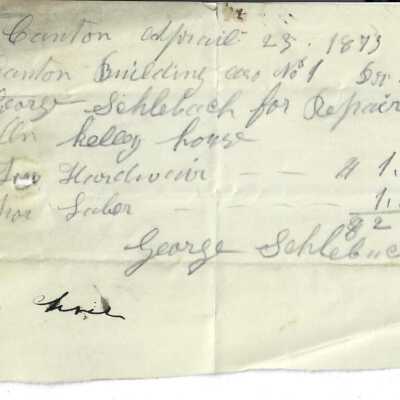 Canton adprail 23. 1873
anton Building aso No 1 Dr.
George Sehlebach for Repair
On kelley house
Hardwair - - - $ 1.
for Laber - - - - 1.
$ 2
George Sehlebac